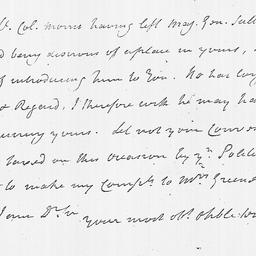 Lt. Col. Morris having left Maj. Gen. Sull
d being desirous of a place in yours,
of introducing him to You. He has long
& Regard, I therefore wish he may ha
yours. Let not your
on this occasion by yr. Polite
to make my Compts. to Mrs Greene
I am Dr. Sr your most obt. hble